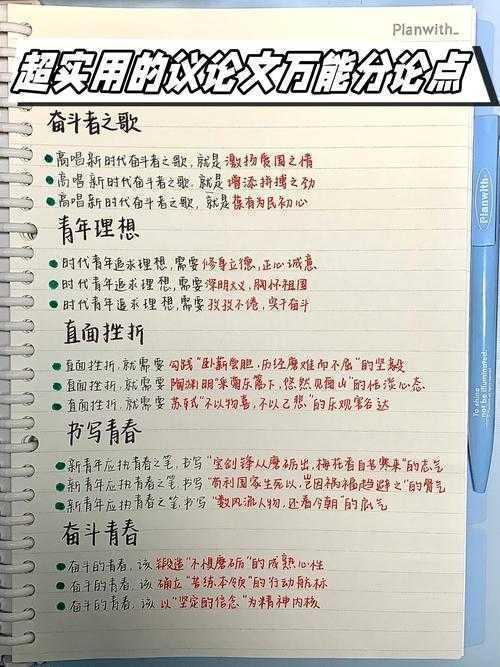 Planwith_
超实用的议论文万能分论点
奋斗者之歌
高唱新时代奋斗者之歌,就是激扬爱国之情
高唱新时代奋斗者之歌,就是增添拼搏之劲
高唱新时代奋斗者之歌,就是葆有为民初心
青年理想
时代青年追求理想,需要修身立德,正心诚意
时代青年追求理想,需要深明大义,胸怀祖国
时代青年追求理想,需要孜孜不倦,实干奋斗
直面挫折
直面挫折,就需要勾践"卧薪尝胆,历经磨难而不屈"的坚毅
直面挫折,就需要陶渊明"采菊东篱下,悠然见南山"的恬淡心态
直面挫折,就需要苏轼"不以物喜,不以己悲"的乐观豁达
书写青春
新青年应执青春之笔,书写"宝剑锋从磨砺出,梅花香自苦寒来"的志气
新青年应执青春之笔,书写"苟利国家生死以,岂因祸福趋避之"的骨气
新青年应执青春之笔,书写"数风流人物,还看今朝"的底气
奋斗青春
奋斗的青春,该锻造"不惧磨砺"的成熟心性
奋斗的青春,该确立"苦练本领"的行动航标
奋斗的青春,该以"坚定的信念"为精神内核
Planwith_
To shine
not be illuminated.